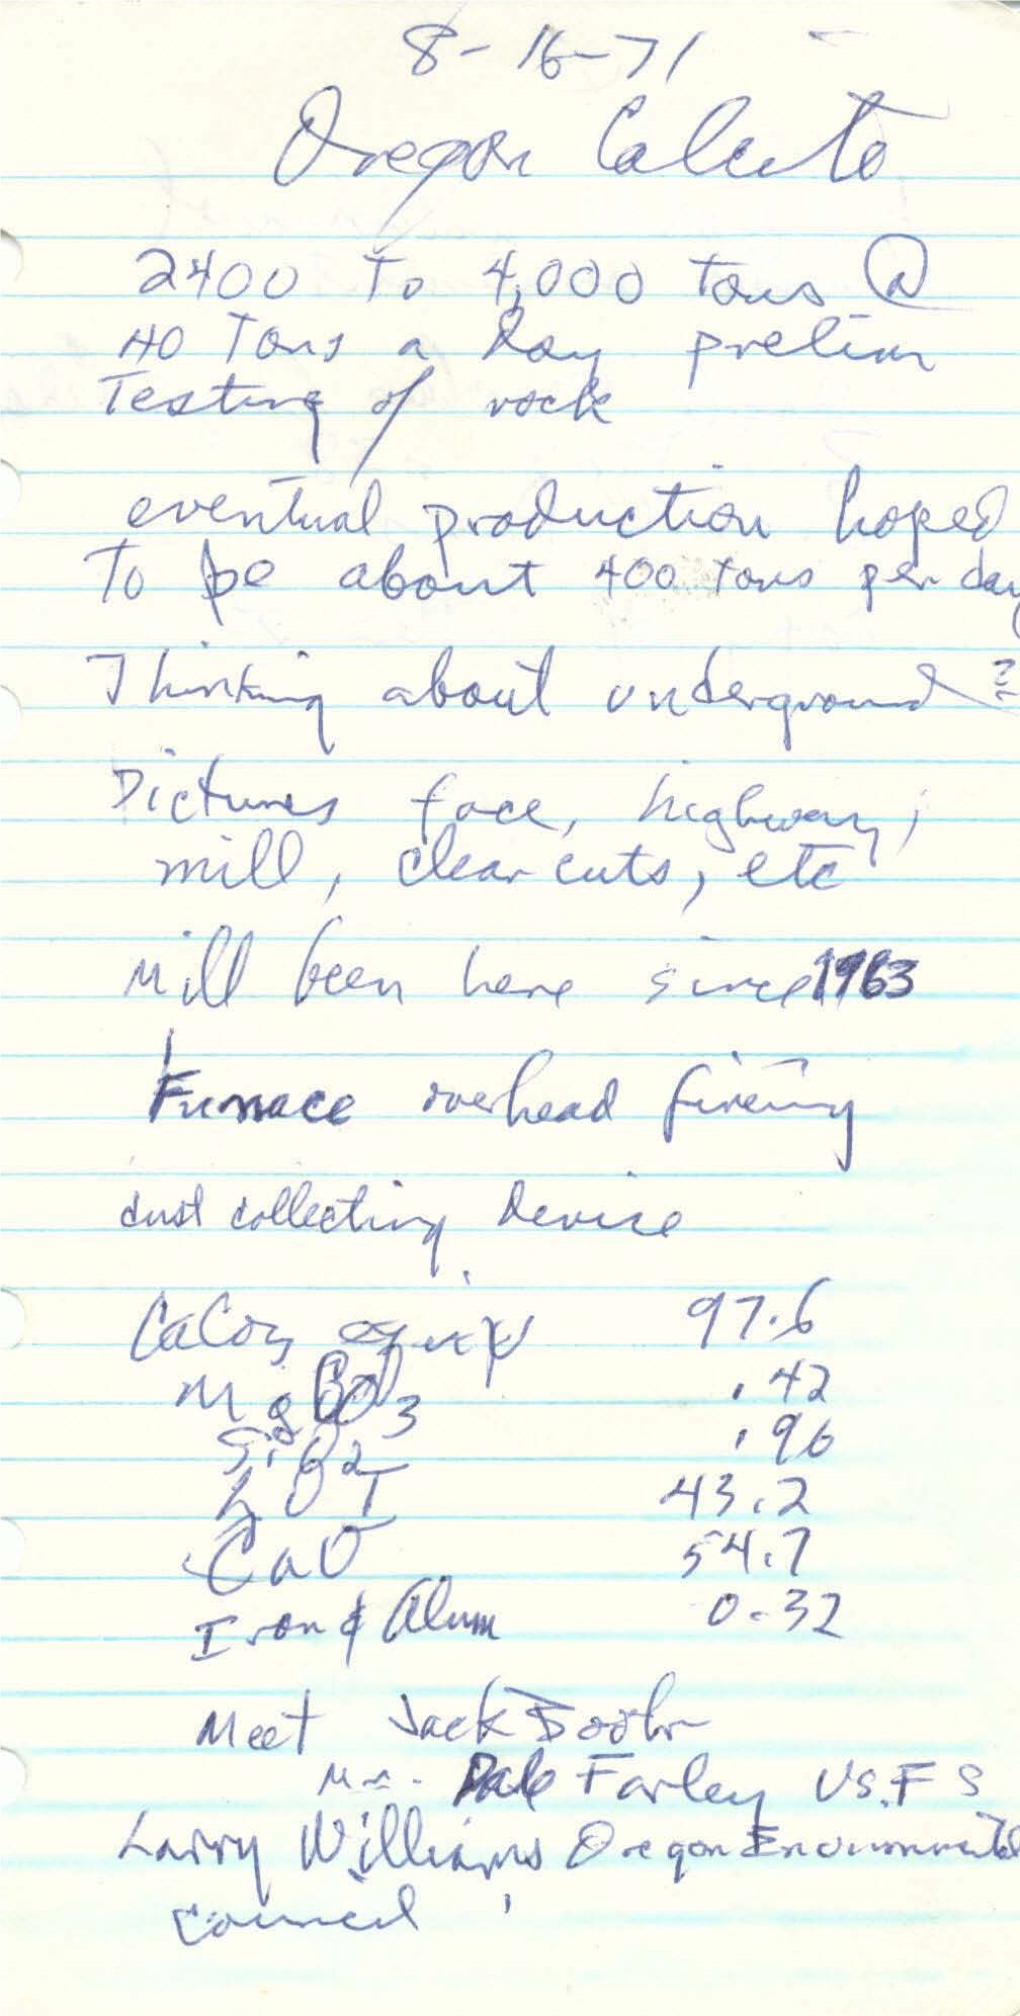 8-16-71
Oregon Calcite
2400 To 4,000 tons @
40 Tons a day prelim
Testing of rock
eventual production hoped
To be about 400 tons per day
Thinking about underground ?
Pictures face, highway,
mill, clear cuts, etc
Mill been here since 1963
Furnace overhead fireing
dust collecting device
CaCo3 equiv 97.6
MgCO3 .42
SiO2 .96
43.2
CaO 54.7
Iron & Alum 0.32
Meet Jack
Mr. Dale Farley US.F S
Larry Williams Oregon Environmental
Council